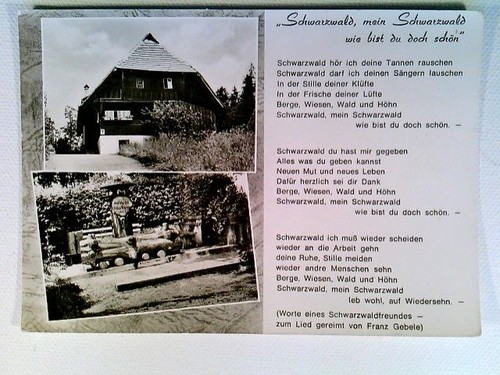 „Schwarzwald, mein Schwarzwald
wie bist du doch schön“
Schwarzwald hör ich deine Tannen rauschen
Schwarzwald darf ich deinen Sängern lauschen
In der Stille deiner Klüfte
In der Frische deiner Lüfte
Berge, Wiesen, Wald und Höhn
Schwarzwald, mein Schwarzwald
wie bist du doch schön. –
Schwarzwald du hast mir gegeben
Alles was du geben kannst
Neuen Mut und neues Leben
Dafür herzlich sei dir Dank
Berge, Wiesen, Wald und Höhn
Schwarzwald, mein Schwarzwald
wie bist du doch schön. –
Schwarzwald ich muß wieder scheiden
wieder an die Arbeit gehn
deine Ruhe, Stille meiden
wieder andre Menschen sehn
Berge, Wiesen, Wald und Höhn
Schwarzwald, mein Schwarzwald
leb wohl, auf Wiedersehn. –
(Worte eines Schwarzwaldfreundes –
zum Lied gereimt von Franz Gebele)